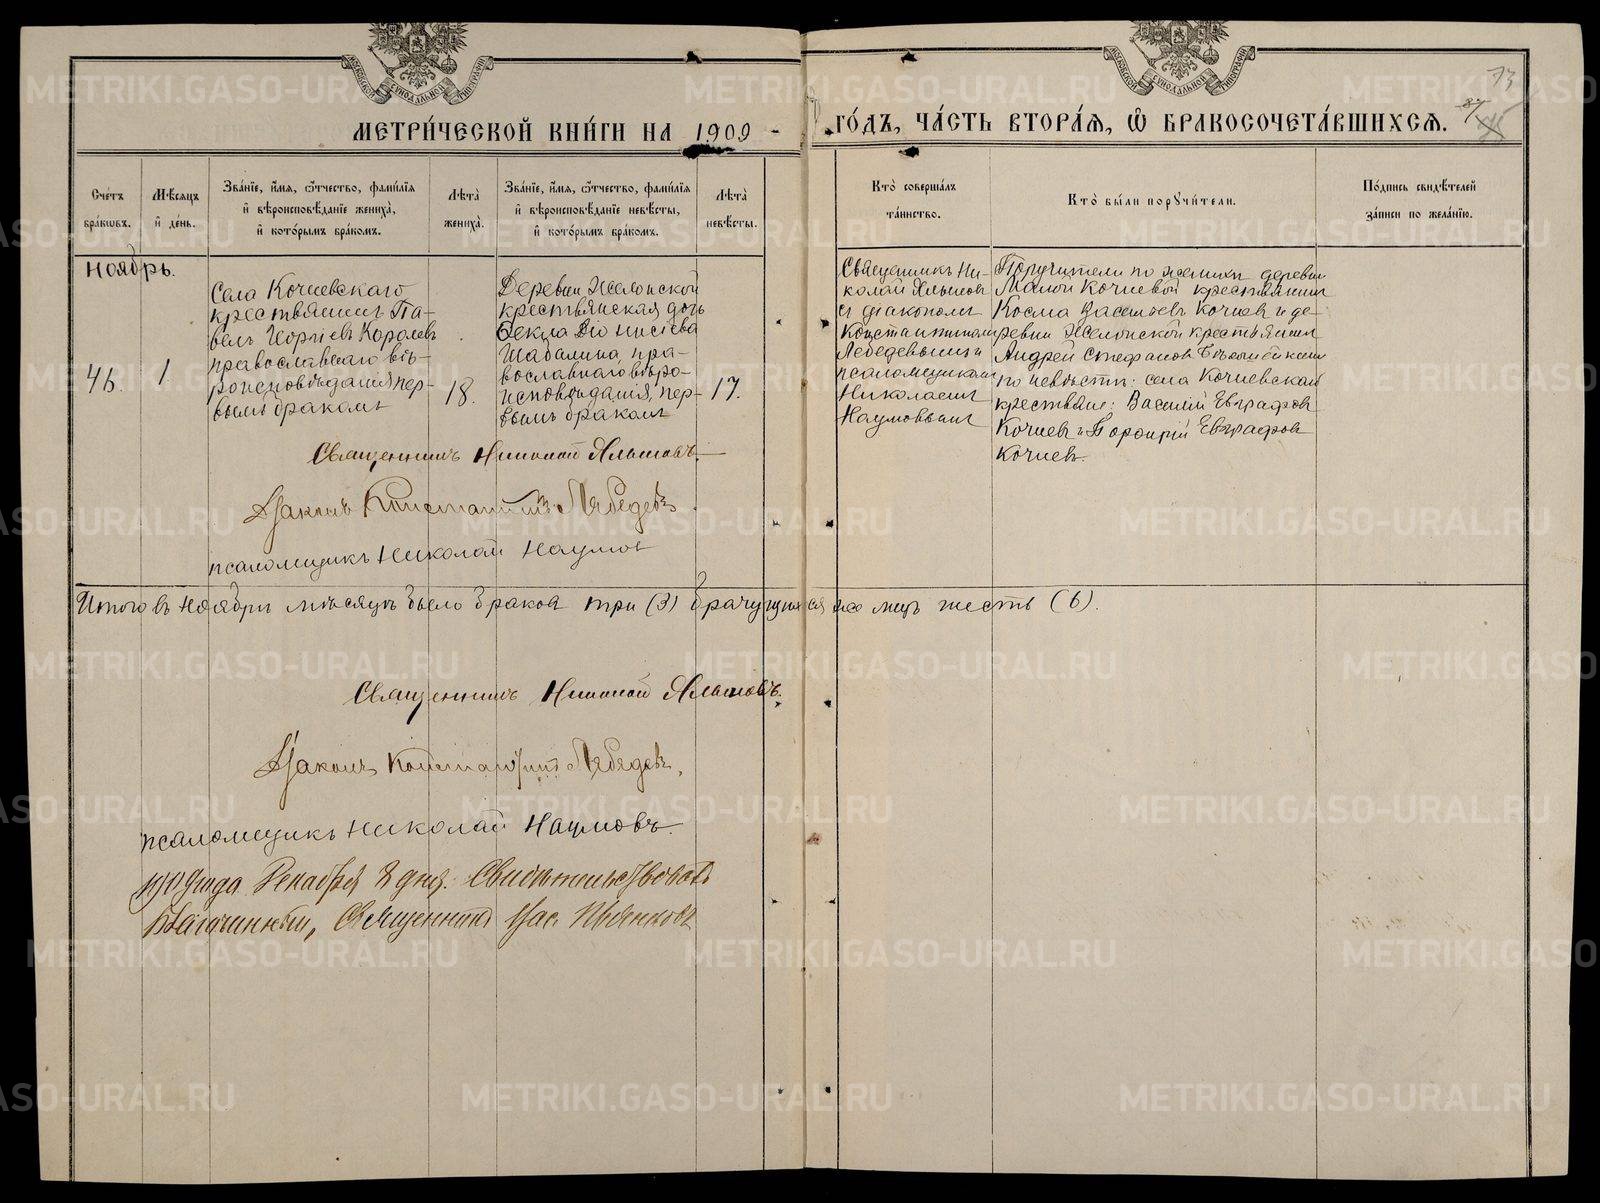 МЕТРИ́ЧЕСКОЙ КНИ́ГИ НА 1909 ГО́ДЪ, ЧА́СТЬ ВТОРА́Я, Ѡ҆ БРАКОСОЧЕТА́ВШИХСЯ.
73
Сче́тъ бра́кѡвъ.
Мѣ́сяцъ и҆ де́нь.
Зва́нїе, и҆́мя, ѻ҆́тчество, фами́лїя и҆ вѣроисповѣ́данїе жениха̀, и҆ кото́рымъ бра́комъ.
Лѣта̀ жениха̀.
Зва́нїе, и҆́мя, ѻ҆́тчество, фами́лїя и҆ вѣроисповѣ́данїе невѣ́сты, и҆ кото́рымъ бра́комъ.
Лѣта̀ невѣ́сты.
Кто̀ соверша́лъ та́инство.
Кто̀ бы́ли порꙋчи́тели.
По́дпись свидѣ́телей за́писи по жела́нїю.
Ноябрь.
46.
1.
Села Кочневскаго
крестьянинъ Па-
велъ Георгіевъ Королевъ
православнаго вѣ-
роисповѣданія, пер-
вымъ бракомъ
18.
Деревни Жолонской
крестьянская дочь
Фекла Діонисіева
Шабалина, пра-
вославнаго вѣро-
исповѣданія, пер-
вымъ бракомъ
17.
Священникъ Ни-
колай Яльшовъ
съ діакономъ
Константиномъ
Лебедевымъ и
псаломщикомъ
Николаемъ
Наумовымъ
Поручители по женихѣ деревни
Малой Кочневой крестьянинъ
Косма Васильевъ Кочневъ и де-
ревни Жолонской крестьянинъ
Андрей Стефановъ
по невѣстѣ: села Кочневскаго
крестьяне: Василій Евграфовъ
Кочневъ и Порфирій Евграфовъ
Кочневъ.
Священникъ Николай Яльшовъ
Діаконъ Константинъ Лебедевъ
псаломщикъ Николай Наумов
Итого въ Ноябрѣ мѣсяцѣ было браковъ три (3) брачущихся же лицъ шесть (6).
Священникъ Николай Яльшовъ.
Діаконъ Константинъ Лебедевъ.
псаломщикъ Николай Наумовъ.
1909 года Декабря 8 дня. Свидѣтельствовалъ
Благочинный, Священникъ
METRIKI.GASO-URAL.RU